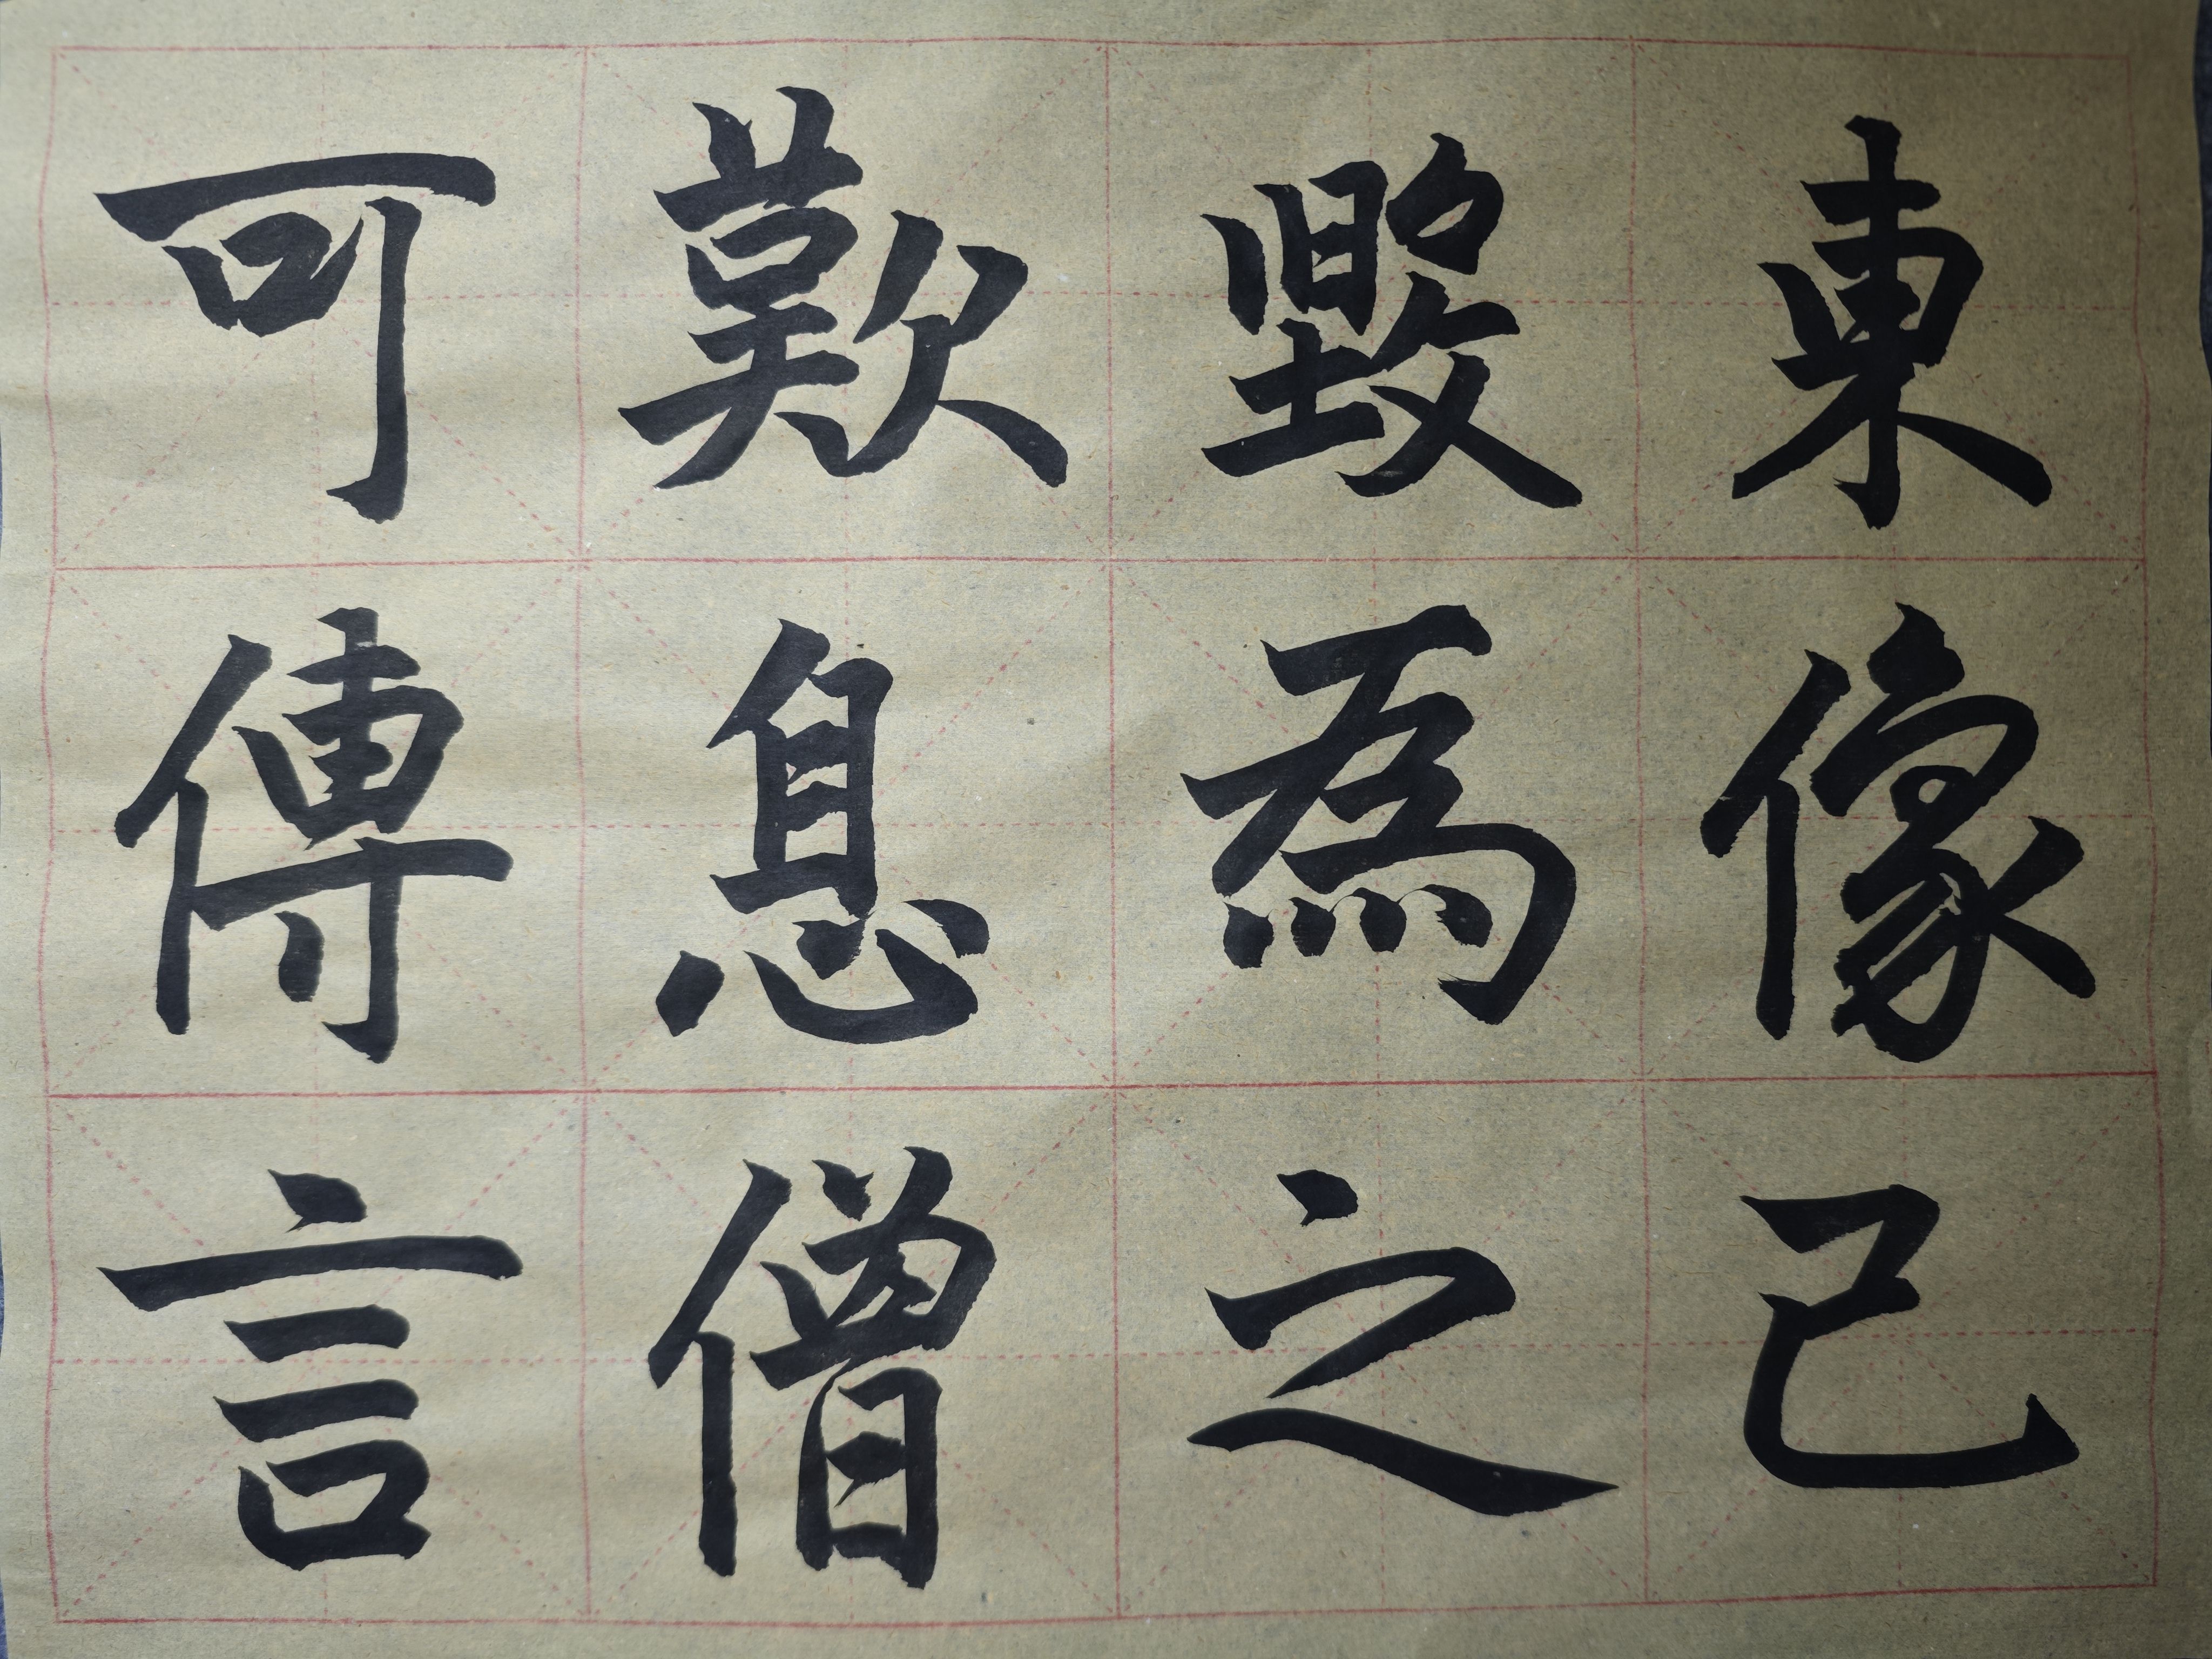 東像已
毀為之
歎息僧
可傳言